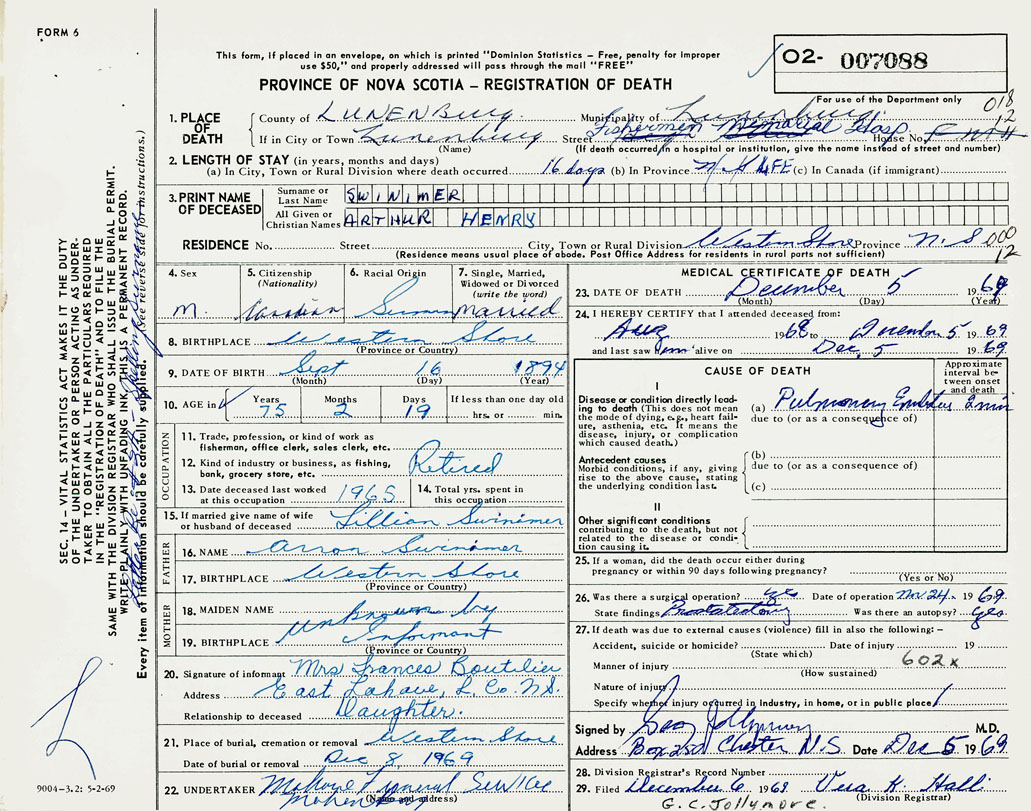 FORM 6
This form, if placed in an envelope, on which is printed "Dominion Statistics – Free, penalty for improper
use $50," and properly addressed will pass through the mail "FREE"
O2- 007088
PROVINCE OF NOVA SCOTIA – REGISTRATION OF DEATH
For use of the Department only
018
12
1. PLACE OF DEATH
County of LUNENBURG Municipality of Lunenburg
If in City or Town Lunenburg Street Fishermen Memorial Hosp. House No.
(Name) (If death occurred in a hospital or institution, give the name instead of street and number)
2. LENGTH OF STAY (in years, months and days)
(a) In City, Town or Rural Division where death occurred 16 days (b) In Province LIFE (c) In Canada (if immigrant)
3. PRINT NAME OF DECEASED
Surname or Last Name SWINIMER
All Given or Christian Names ARTHUR HENRY
RESIDENCE No. Street City, Town or Rural Division Western Shore Province N.S
000
12
(Residence means usual place of abode. Post Office Address for residents in rural parts not sufficient)
4. Sex M.
5. Citizenship (Nationality) Canadian
6. Racial Origin German
7. Single, Married, Widowed or Divorced (write the word) Married
8. BIRTHPLACE Western Shore
(Province or Country)
9. DATE OF BIRTH Sept 16 1894
(Month) (Day) (Year)
10. AGE in Years 75 Months 2 Days 19 If less than one day old hrs. or min.
OCCUPATION
11. Trade, profession, or kind of work as fisherman, office clerk, sales clerk, etc.
12. Kind of industry or business, as fishing, bank, grocery store, etc.
Retired
13. Date deceased last worked at this occupation 1965
14. Total yrs. spent in this occupation
15. If married give name of wife or husband of deceased Lillian Swinimer
FATHER
16. NAME Arron Swinimer
17. BIRTHPLACE Western Shore
(Province or Country)
MOTHER
18. MAIDEN NAME Unknown by
19. BIRTHPLACE Informant
(Province or Country)
20. Signature of informant Mrs Frances Boutilier
Address East Lahave, L. Co. N.S.
Relationship to deceased Daughter.
21. Place of burial, cremation or removal Western Shore
Date of burial or removal Dec 8, 1969
22. UNDERTAKER Mahone Funeral Service
(Name and address)
MEDICAL CERTIFICATE OF DEATH
23. DATE OF DEATH December 5 1969
(Month) (Day) (Year)
24. I HEREBY CERTIFY that I attended deceased from:
Aug 1968 to December 5 1969
and last saw him alive on Dec. 5 1969.
CAUSE OF DEATH
Approximate interval between onset and death
I
Disease or condition directly leading to death (This does not mean the mode of dying, e.g., heart failure, asthenia, etc. It means the disease, injury, or complication which caused death.)
(a) Pulmonary Embolus
due to (or as a consequence of)
Antecedent causes
Morbid conditions, if any, giving rise to the above cause, stating the underlying condition last.
(b)
due to (or as a consequence of)
(c)
II
Other significant conditions contributing to the death, but not related to the disease or condition causing it.
25. If a woman, did the death occur either during pregnancy or within 90 days following pregnancy?
(Yes or No)
26. Was there a surgical operation? yes Date of operation Nov 24. 1969.
State findings Was there an autopsy? yes
27. If death was due to external causes (violence) fill in also the following: –
Accident, suicide or homicide? Date of injury 19
(State which)
Manner of injury 602x
(How sustained)
Nature of injury
Specify whether injury occurred in Industry, in home, or in public place
Signed by Geo Jollymore M.D.
Address Box 250 Chester N.S. Date Dec 5 1969.
28. Division Registrar's Record Number
29. Filed December 6 1969 Vera K. Hall
(Division Registrar)
G.C. Jollymore.
SEC. 14 – VITAL STATISTICS ACT MAKES IT THE DUTY
OF THE UNDERTAKER OR PERSON ACTING AS UNDERTAKER TO OBTAIN ALL THE PARTICULARS REQUIRED
IN THE "REGISTRATION OF DEATH" AND TO FILE THE
SAME WITH THE DIVISION REGISTRAR WHO SHALL ISSUE THE BURIAL PERMIT.
WRITE PLAINLY WITH UNFADING INK THIS IS A PERMANENT RECORD.
Every item of information should be carefully supplied. (See reverse side for instructions.)
9004–3.2: 5-2-69